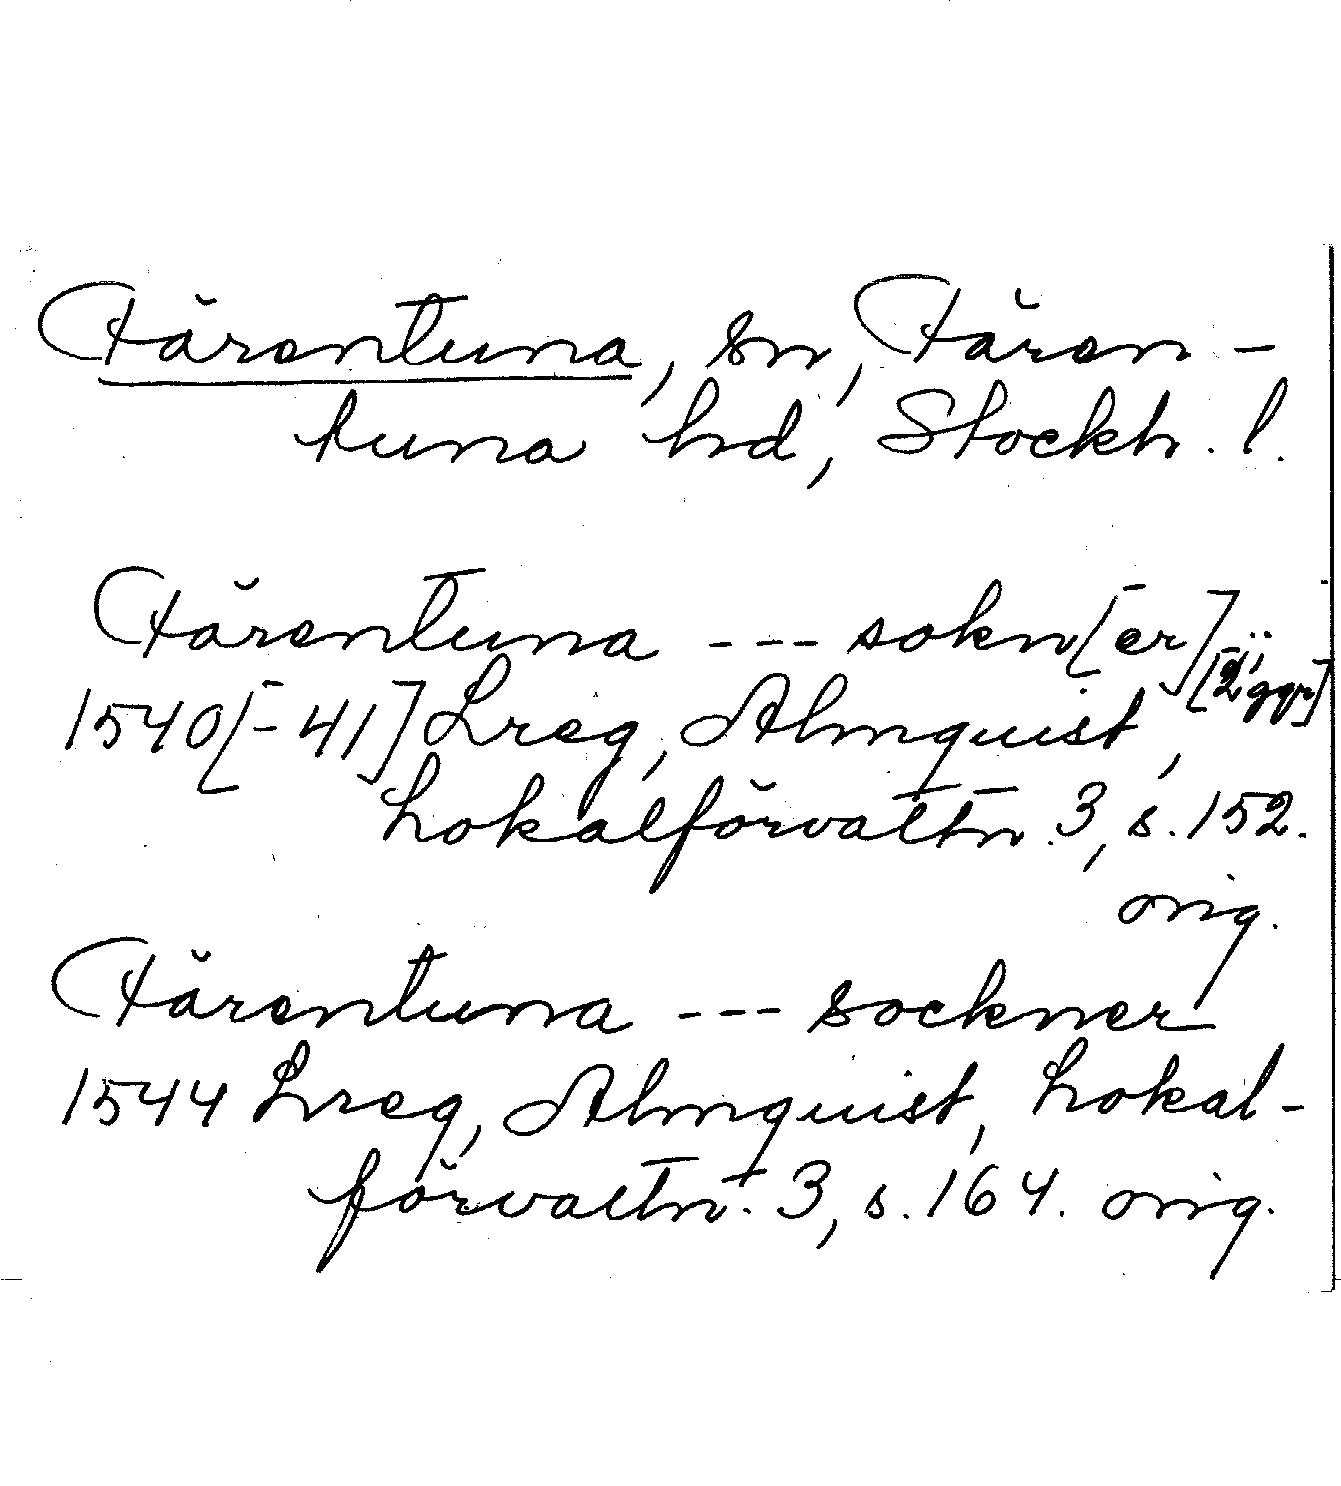 Färentuna, sn, Fären-
tuna hd, Stockh. l.
Färentuna --- sokn[er]
[2 ggr]
1540[-41] Lreg, Almquist,
Lokalförvaltn. 3, s. 152.
orig.
Färentuna --- sockner
1544 Lreg, Almquist, Lokal-
förvaltn. 3, s. 164. orig.